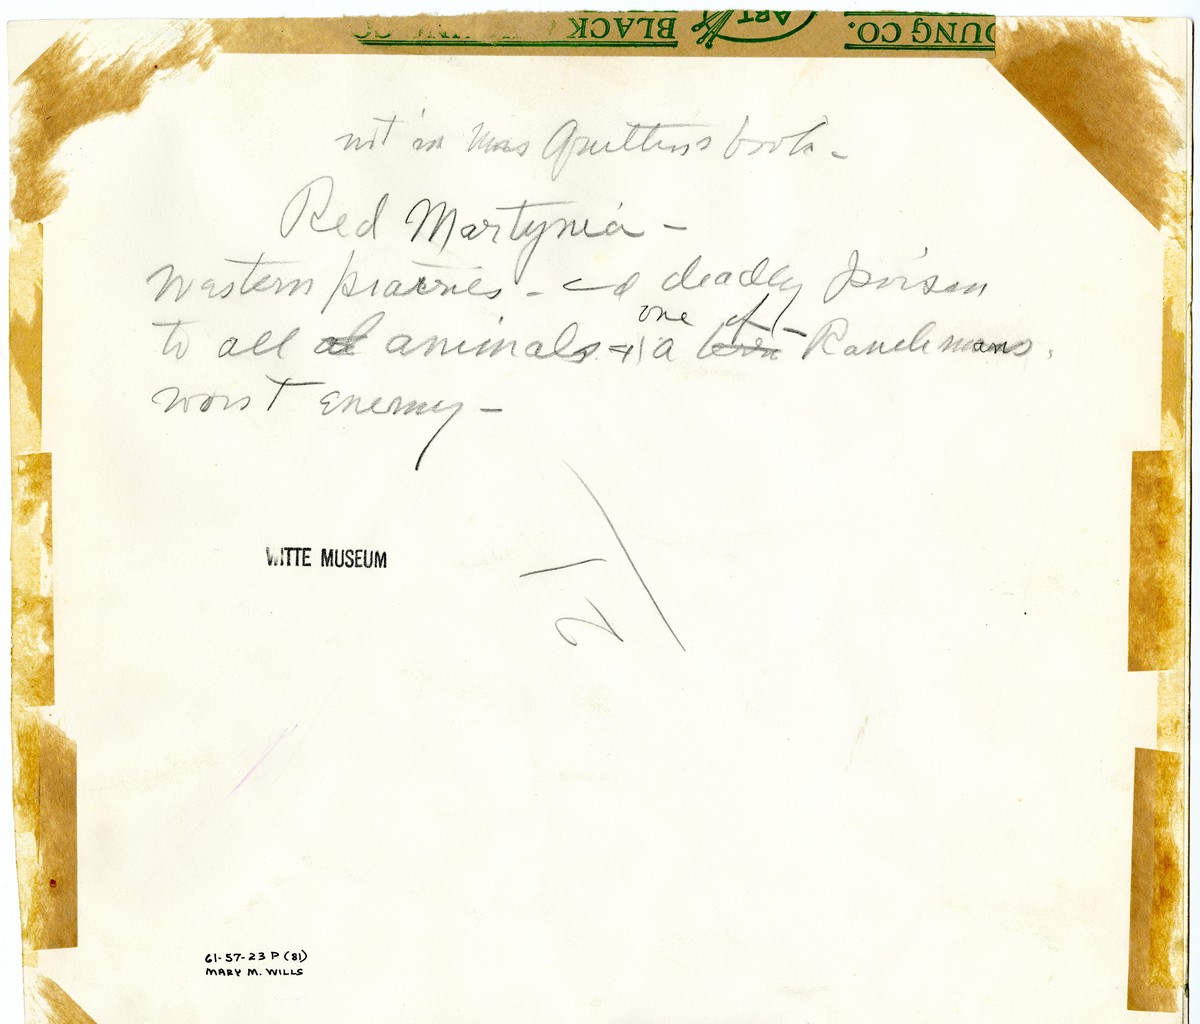 OUNG CO. ART BLACK UNG CO
not in Mrs book -
Red Martynia -
Western prairies - a deadly poison
to all animals + a one of Ranchmans
worst enemy -
WITTE MUSEUM
61-57-23 P (81)
MARY M. WILLS